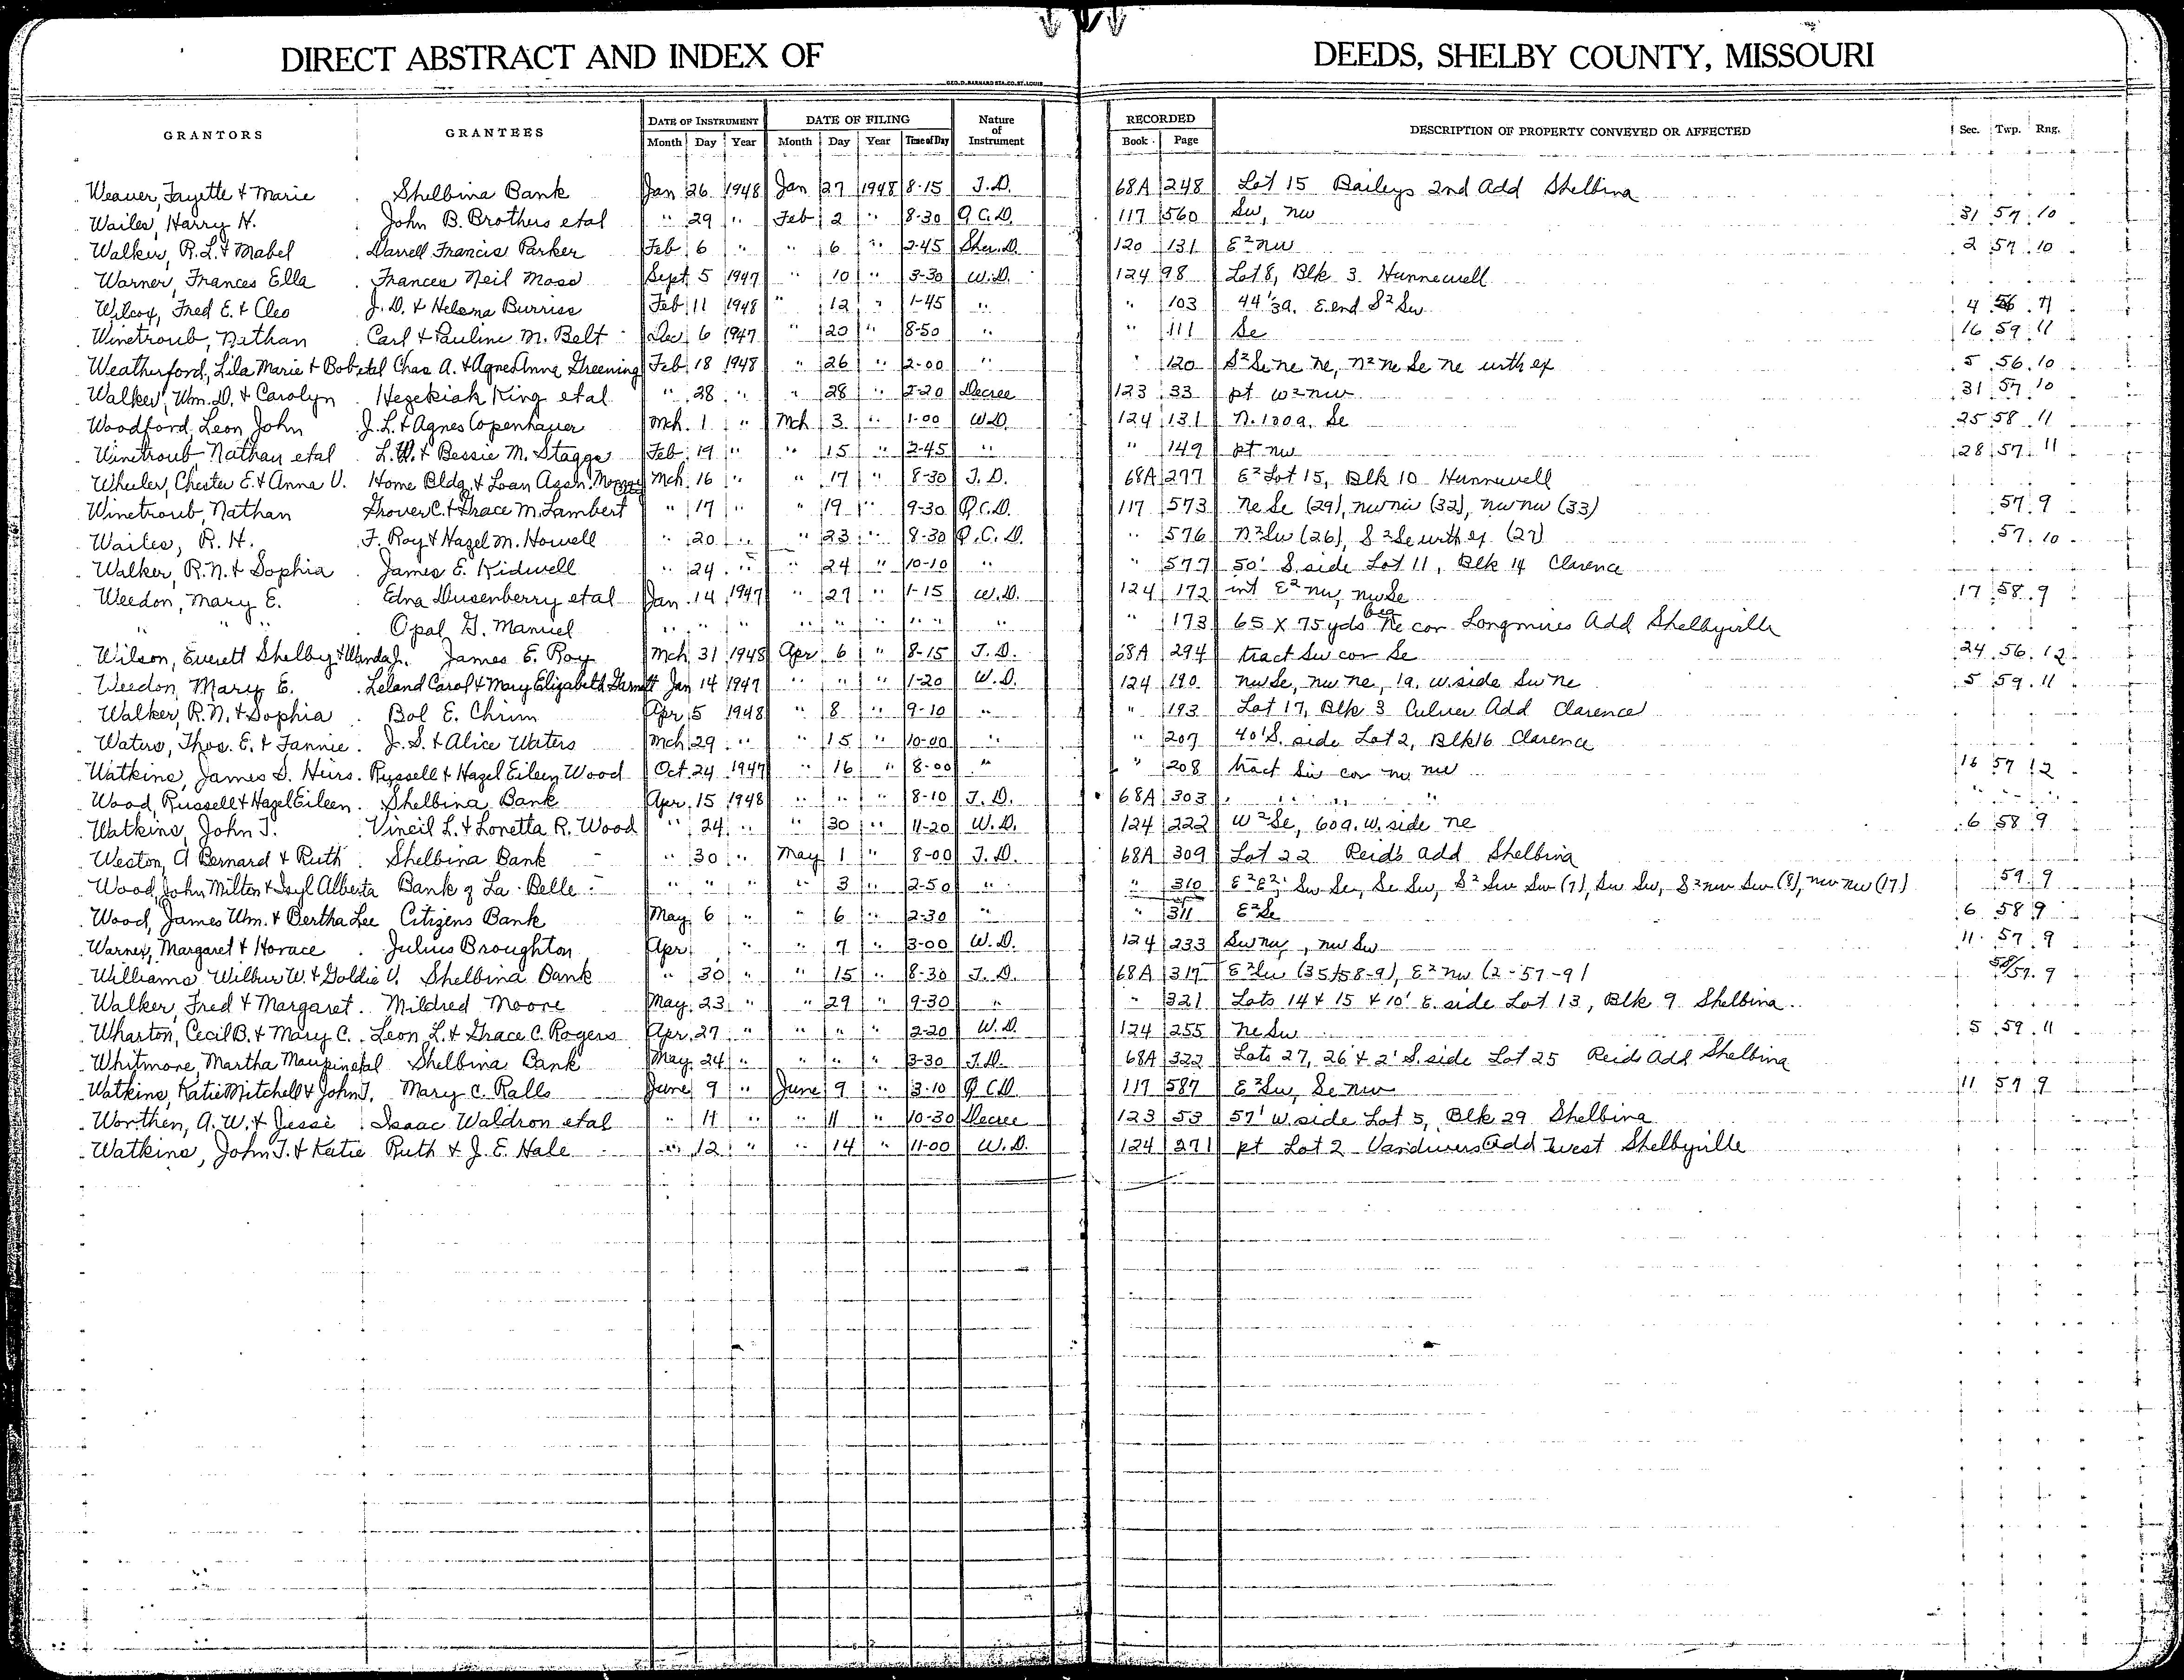 DIRECT ABSTRACT AND INDEX OF DEEDS, SHELBY COUNTY, MISSOURI
GEO. D. BARNARD STA. CO. ST. LOUIS
GRANTORS GRANTEES DATE OF INSTRUMENT DATE OF FILING Nature of Instrument RECORDED DESCRIPTION OF PROPERTY CONVEYED OR AFFECTED Sec. Twp. Rng.
Month Day Year Month Day Year Time of Day Book Page
Weaver, Fayette & Marie Shelbina Bank Jan 26 1948 Jan 27 1948 8-15 T.D. 68A 248 Lot 15 Baileys 2nd Add Shelbina
Wailes, Harry H. John B. Brothers etal " 29 " Feb 2 " 8-30 Q.C.D. 117 560 Sw, nw 31 57 10
Walker, R.L. & Mabel Darrell Francis Parker Feb 6 " " 6 " 2-45 Sher.D. 120 131 E² nw 2 57 10
Warner, Frances Ella Frances Neil Moss Sept 5 1947 " 10 " 3-30 W.D. 124 98 Lot 8, Blk 3 Hunnewell
Wilcox, Fred E. & Cleo J.D. & Helena Burriss Feb 11 1948 " 12 " 1-45 " " 103 44 ⅓a. E. end S² Sw 4 56 11
Winetroub, Nathan Carl & Pauline M. Belt Dec 6 1947 " 20 " 8-50 " " 111 Se 16 59 11
Weatherford, Lila Marie & Bob etal Chas A. & Agnes Anna Greening Feb 18 1948 " 26 " 2-00 " " 120 S² Se ne ne, n² ne Se ne with ex 5 56 10
Walker, Wm. D. & Carolyn Hezekiah King etal " 28 " " 28 " 2-20 Decree 123 33 pt w² nw 31 57 10
Woodford, Leon John J.L. & Agnes Copenhaver Mch. 1 " Mch 3 " 1-00 W.D. 124 131 N. 130a. Se 25 58 11
Winetroub, Nathan etal L.W. & Bessie M. Staggs Feb 19 " " 15 " 2-45 " " 149 pt nw 28 57 11
Wheeler, Chester E. & Anna V. Home Bldg. & Loan Assn. Mch. 16 " " 17 " 8-30 T.D. 68A 277 E² Lot 15, Blk 10 Hunnewell
Winetroub, Nathan Grover C. & Grace M. Lambert " 17 " " 19 " 9-30 Q.C.D. 117 573 ne Se (29), nw nw (32), nw nw (33) 57 9
Wailes, R.H. F. Roy & Hazel M. Howell " 20 " " 23 " 8-30 Q.C.D. " 576 N² Sw (26), S² Se with ex (27) 57 10
Walker, R.N. & Sophia James E. Kidwell " 24 " " 24 " 10-10 " " 577 50' S. side Lot 11, Blk 14 Clarence
Weedon, Mary E. Edna Dusenberry etal Jan 14 1947 " 27 " 1-15 W.D. 124 172 int E² nw, nw Se 17 58 9
" " " Opal G. Manuel " " " " " " " " " " 173 65 X 75 yds beg ne cor Longmires Add Shelbyville
Wilson, Everett Shelby & Wanda J. James E. Roy Mch 31 1948 Apr 6 " 8-15 T.D. 68A 294 tract Sw cor Se 24 56 12
Weedon, Mary E. Leland Carol & Mary Elizabeth Garnett Jan 14 1947 " " " 1-20 W.D. 124 190 nw Se, nw ne, 1a. w. side Sw ne 5 59 11
Walker, R.N. & Sophia Bol E. Chrim Apr 5 1948 " 8 " 9-10 " " 193 Lot 17, Blk 3 Culver Add Clarence
Waters, Thos. E. & Fannie J.S. & Alice Waters Mch 29 " " 15 " 10-00 " " 207 40' S. side Lot 2, Blk 16 Clarence
Watkins, James S. Heirs Russell & Hazel Eileen Wood Oct 24 1947 " 16 " 8-00 " " 208 tract Sw cor nw nw 16 57 12
Wood, Russell & Hazel Eileen Shelbina Bank Apr. 15 1948 " " " 8-10 T.D. 68A 303 " " " " " " " "
Watkins, John T. Vincil L. & Loretta R. Wood " 24 " " 30 " 11-20 W.D. 124 222 W² Se, 60a. W. side ne 6 58 9
Weston, A Bernard & Ruth Shelbina Bank " 30 " May 1 " 8-00 T.D. 68A 309 Lot 22 Reids add Shelbina
Wood, John Milton & Isyl Alberta Bank of La Belle " " " " 3 " 2-50 " " 310 E² E², Sw Se, Se Sw, S² Sw Sw (7), Sw Sw, S² nw Sw (8), nw nw (17) 59 9
Wood, James Wm. & Bertha Lee Citizens Bank May 6 " " 6 " 2-30 " " 311 E² Se 6 58 9
Warner, Margaret & Horace Julius Broughton Apr " " 7 " 3-00 W.D. 124 233 Sw nw, nw Sw 11 57 9
Williams Wilbur W. & Goldie V. Shelbina Bank " 30 " " 15 " 8-30 T.D. 68A 317 E² Sw (35/58-9), E² nw (2-57-9) 58/57 9
Walker, Fred & Margaret Mildred Moore May 23 " " 29 " 9-30 " " 321 Lots 14 & 15 & 10' E. side Lot 13, Blk 9 Shelbina
Wharton, Cecil B. & Mary C. Leon L. & Grace C. Rogers Apr 27 " " " " 2-20 W.D. 124 255 ne Sw 5 59 11
Whitmore, Martha Maupin etal Shelbina Bank May 24 " " " " 3-30 T.D. 68A 322 Lots 27, 26 & 2' S. side Lot 25 Reids Add Shelbina
Watkins, Katie Mitchell & John T. Mary C. Ralls June 9 " June 9 " 3-10 Q.C.D. 117 587 E² Sw, Se nw 11 59 9
Worthen, A.W. & Jessie Isaac Waldron etal " 11 " " 11 " 10-30 Decree 123 53 57' w side Lot 5, Blk 29 Shelbina
Watkins, John T. & Katie Ruth & J.E. Hale " 12 " " 14 " 11-00 W.D. 124 271 pt Lot 2 Vandivers Add West Shelbyville